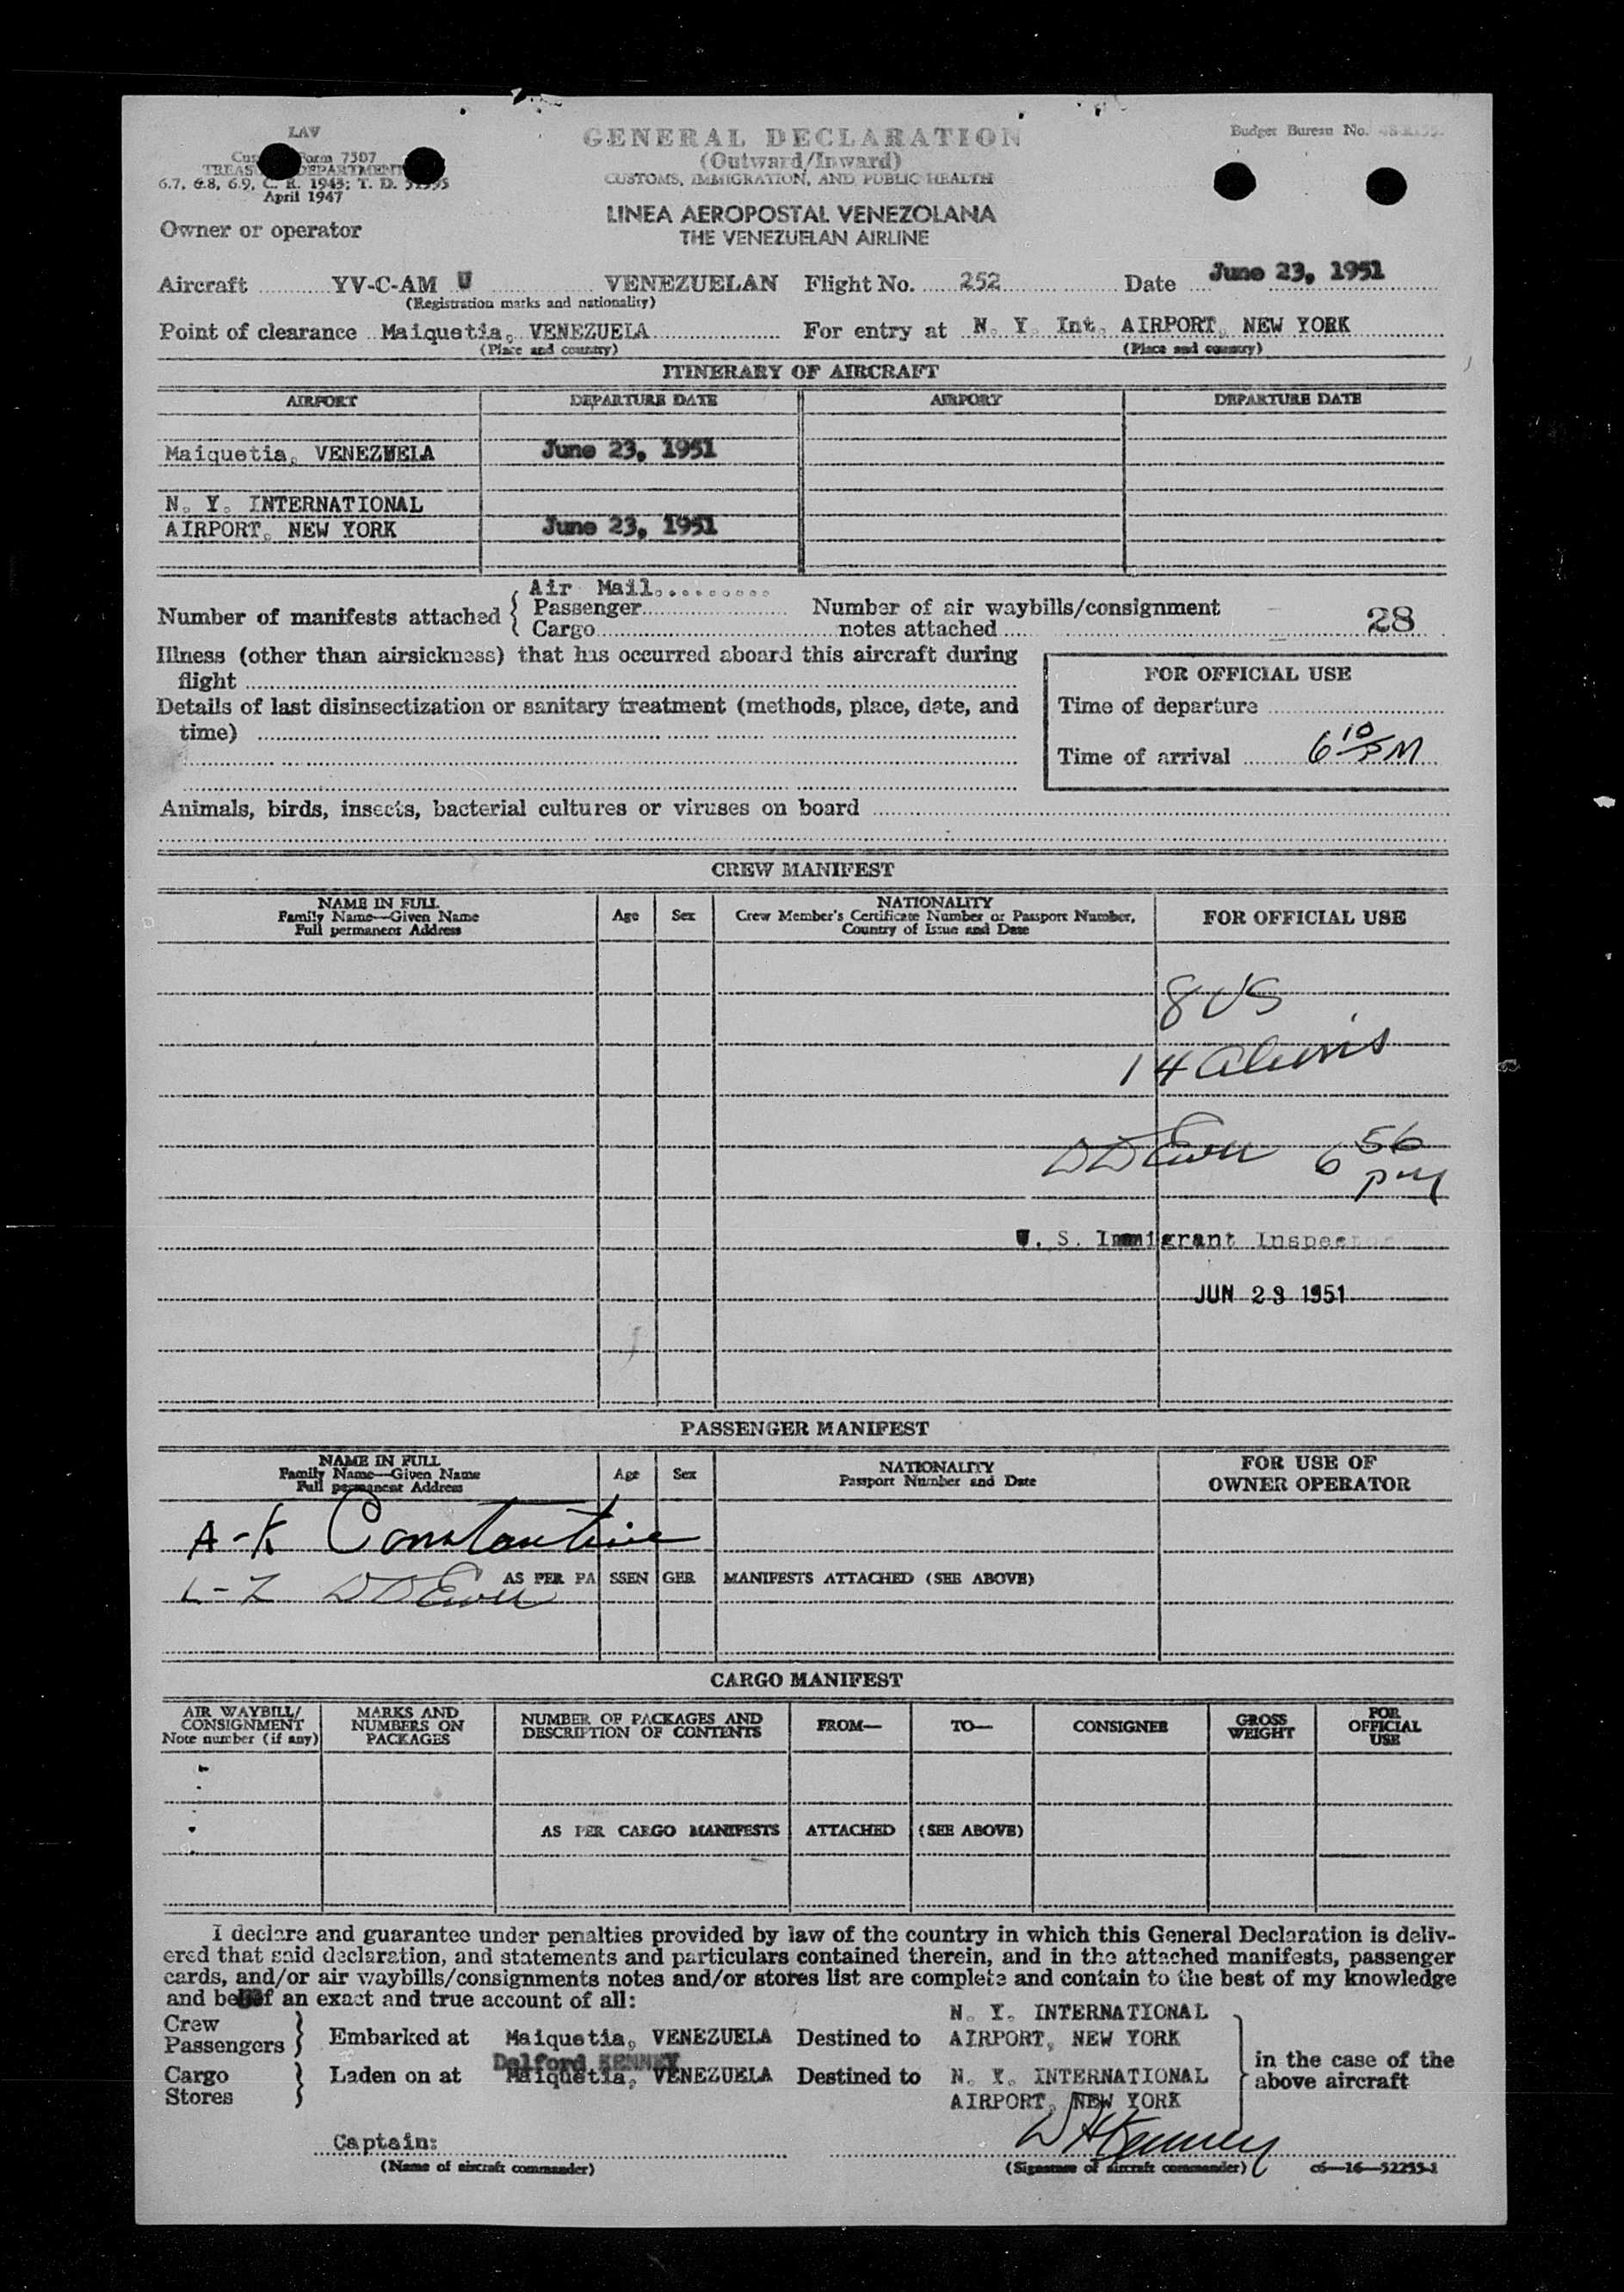 LAV
Form 7507
TREAS DEPARTMENT
6.7, 6.8, 6.9, C. R. 1943; T. D.
April 1947
GENERAL DECLARATION
(Outward/Inward)
CUSTOMS, IMMIGRATION, AND PUBLIC HEALTH
LINEA AEROPOSTAL VENEZOLANA
THE VENEZUELAN AIRLINE
Budget Bureau No.
Owner or operator
Aircraft YV-C-AM U VENEZUELAN Flight No. 252 Date June 23, 1951
(Registration marks and nationality)
Point of clearance Maiquetia, VENEZUELA For entry at N. Y. Int. AIRPORT, NEW YORK
(Place and country) (Place and country)
ITINERARY OF AIRCRAFT
AIRPORT DEPARTURE DATE AIRPORT DEPARTURE DATE
Maiquetia, VENEZUELA June 23, 1951
N. Y. INTERNATIONAL
AIRPORT, NEW YORK June 23, 1951
Number of manifests attached { Air Mail
Passenger
Cargo
Number of air waybills/consignment
notes attached 28
Illness (other than airsickness) that has occurred aboard this aircraft during
flight
Details of last disinsectization or sanitary treatment (methods, place, date, and
time)
FOR OFFICIAL USE
Time of departure
Time of arrival 6 10 PM
Animals, birds, insects, bacterial cultures or viruses on board
CREW MANIFEST
NAME IN FULL
Family Name—Given Name
Full permanent Address
Age
Sex
NATIONALITY
Crew Member's Certificate Number or Passport Number,
Country of Issue and Date
FOR OFFICIAL USE
8 US
14 aliens
6 56 pm
U. S. Immigrant Inspector
JUN 23 1951
PASSENGER MANIFEST
NAME IN FULL
Family Name—Given Name
Full permanent Address
Age
Sex
NATIONALITY
Passport Number and Date
FOR USE OF
OWNER OPERATOR
A-K Constantine
L-Z
AS PER PASSENGER MANIFESTS ATTACHED (SEE ABOVE)
CARGO MANIFEST
AIR WAYBILL/
CONSIGNMENT
Note number (if any)
MARKS AND
NUMBERS ON
PACKAGES
NUMBER OF PACKAGES AND
DESCRIPTION OF CONTENTS
FROM—
TO—
CONSIGNEE
GROSS
WEIGHT
FOR
OFFICIAL
USE
AS PER CARGO MANIFESTS ATTACHED (SEE ABOVE)
I declare and guarantee under penalties provided by law of the country in which this General Declaration is deliv-
ered that said declaration, and statements and particulars contained therein, and in the attached manifests, passenger
cards, and/or air waybills/consignments notes and/or stores list are complete and contain to the best of my knowledge
and belief an exact and true account of all:
Crew
Passengers } Embarked at Maiquetia, VENEZUELA Destined to N. Y. INTERNATIONAL
AIRPORT, NEW YORK
Delford KENNEY
Cargo
Stores } Laden on at Maiquetia, VENEZUELA Destined to N. Y. INTERNATIONAL
AIRPORT, NEW YORK
} in the case of the
above aircraft
Captain: D H Kenney
(Name of aircraft commander) (Signature of aircraft commander) c6—16—52255-1